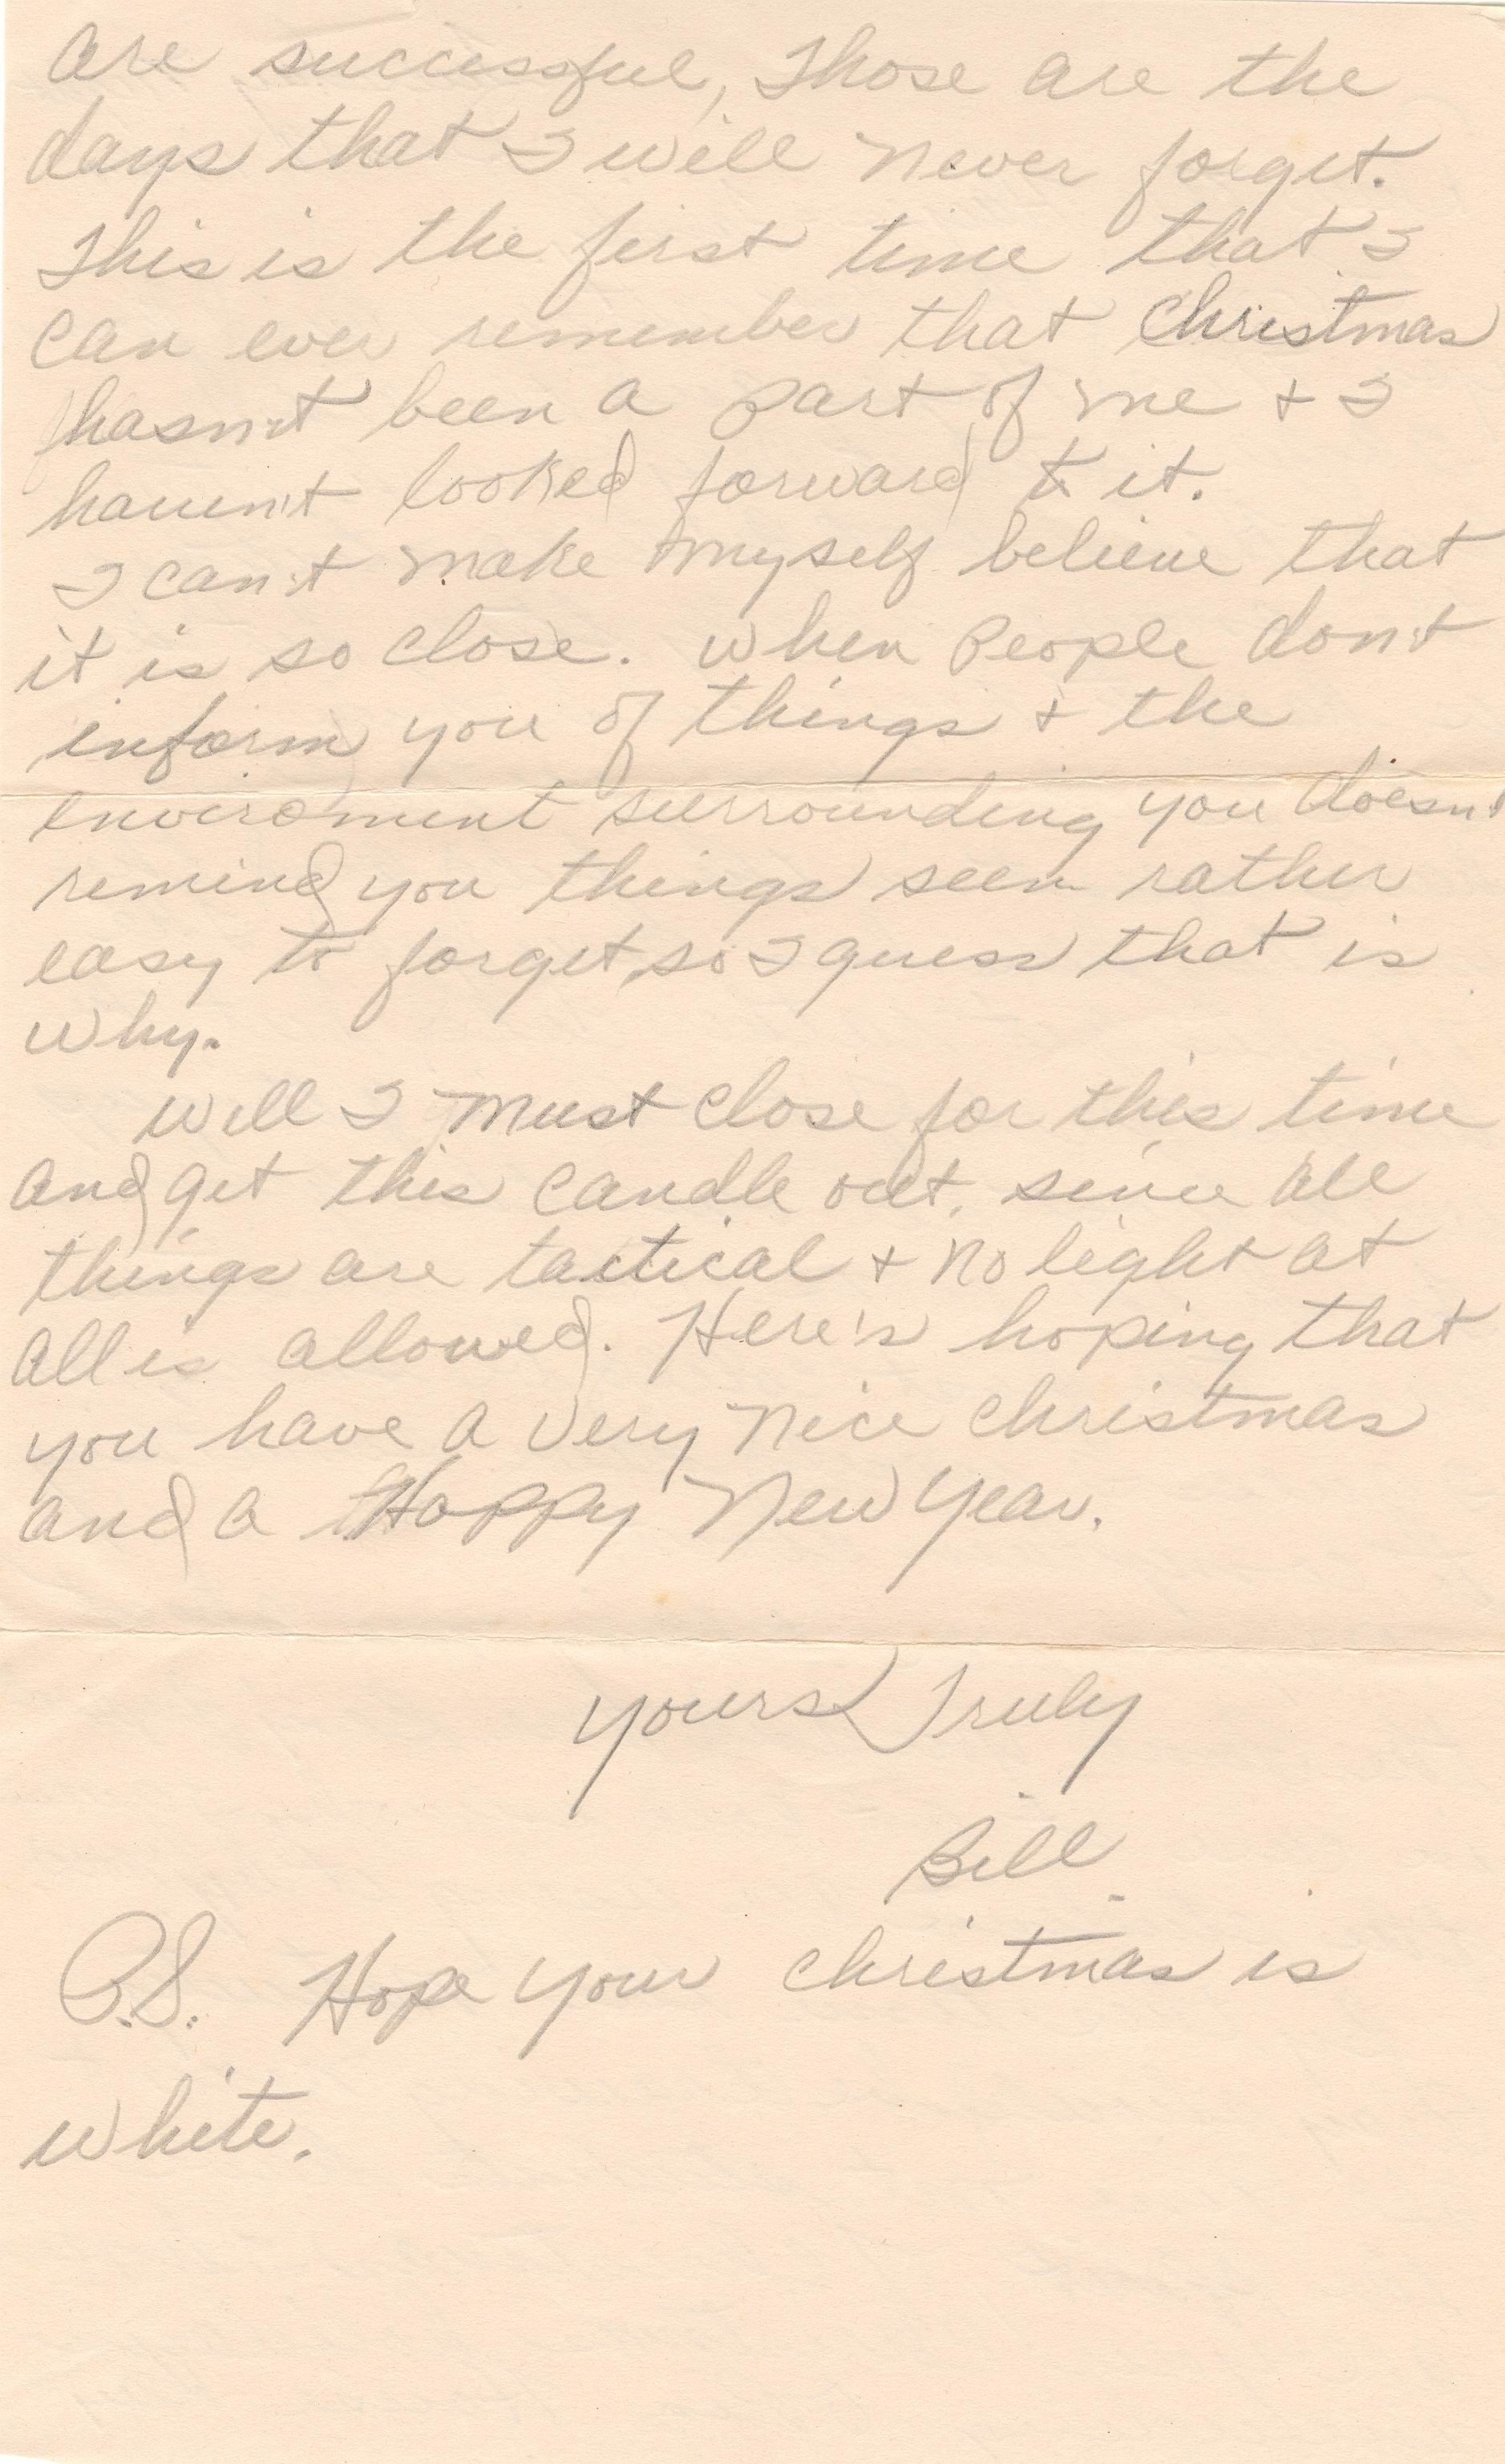 are successful, Those are the
days that I will never forget.
This is the first time that I
can ever remember that Christmas
hasn't been a part of me + I
haven't looked forward to it.
I can't make myself believe that
it is so close. When People don't
inform you of things + the
enviroment surrounding you doesn't
remind you things seem rather
easy to forget, so I guess that is
why.
Well I must close for this time
and get this candle out, since all
things are tactical + no light at
all is allowed. Here's hoping that
you have a very nice Christmas
and a Happy New Year.
Yours Truly
Bill
P.S. Hope your Christmas is
white.